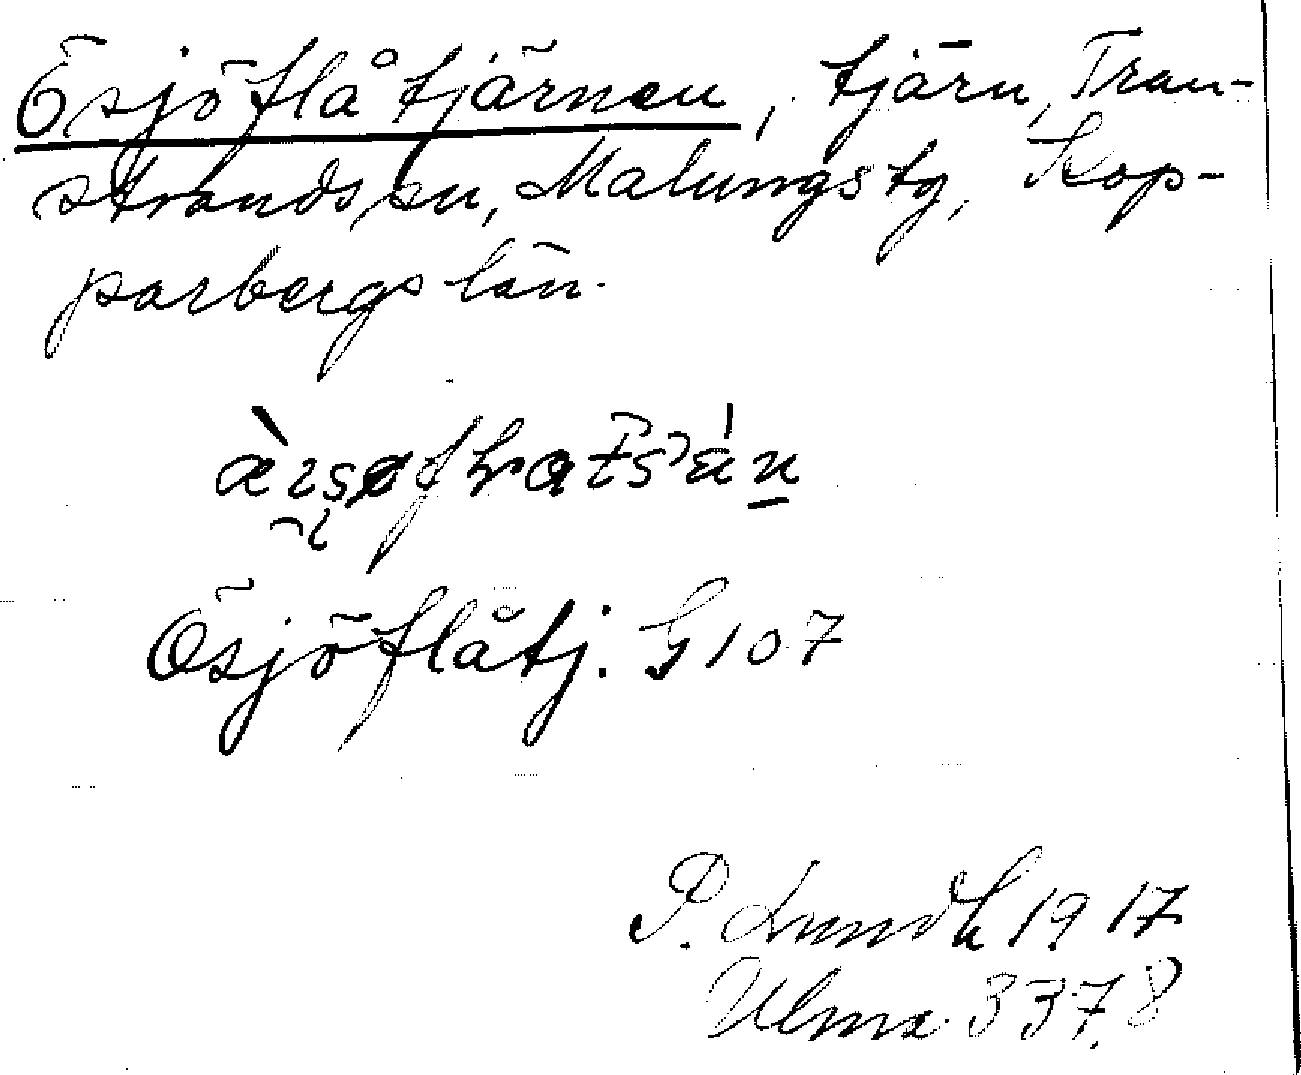 Ösjöflåtjärnen, tjärn, Tran-
strands sn, Malungs tg, Kop-
parbergs län.
Ösjöflåtj. G 107
P. Lundh 1917
Ulma 337.8